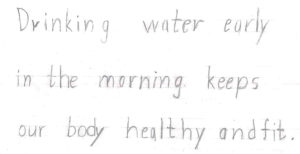 Drinking water early
in the morning keeps
our body healthy and fit.